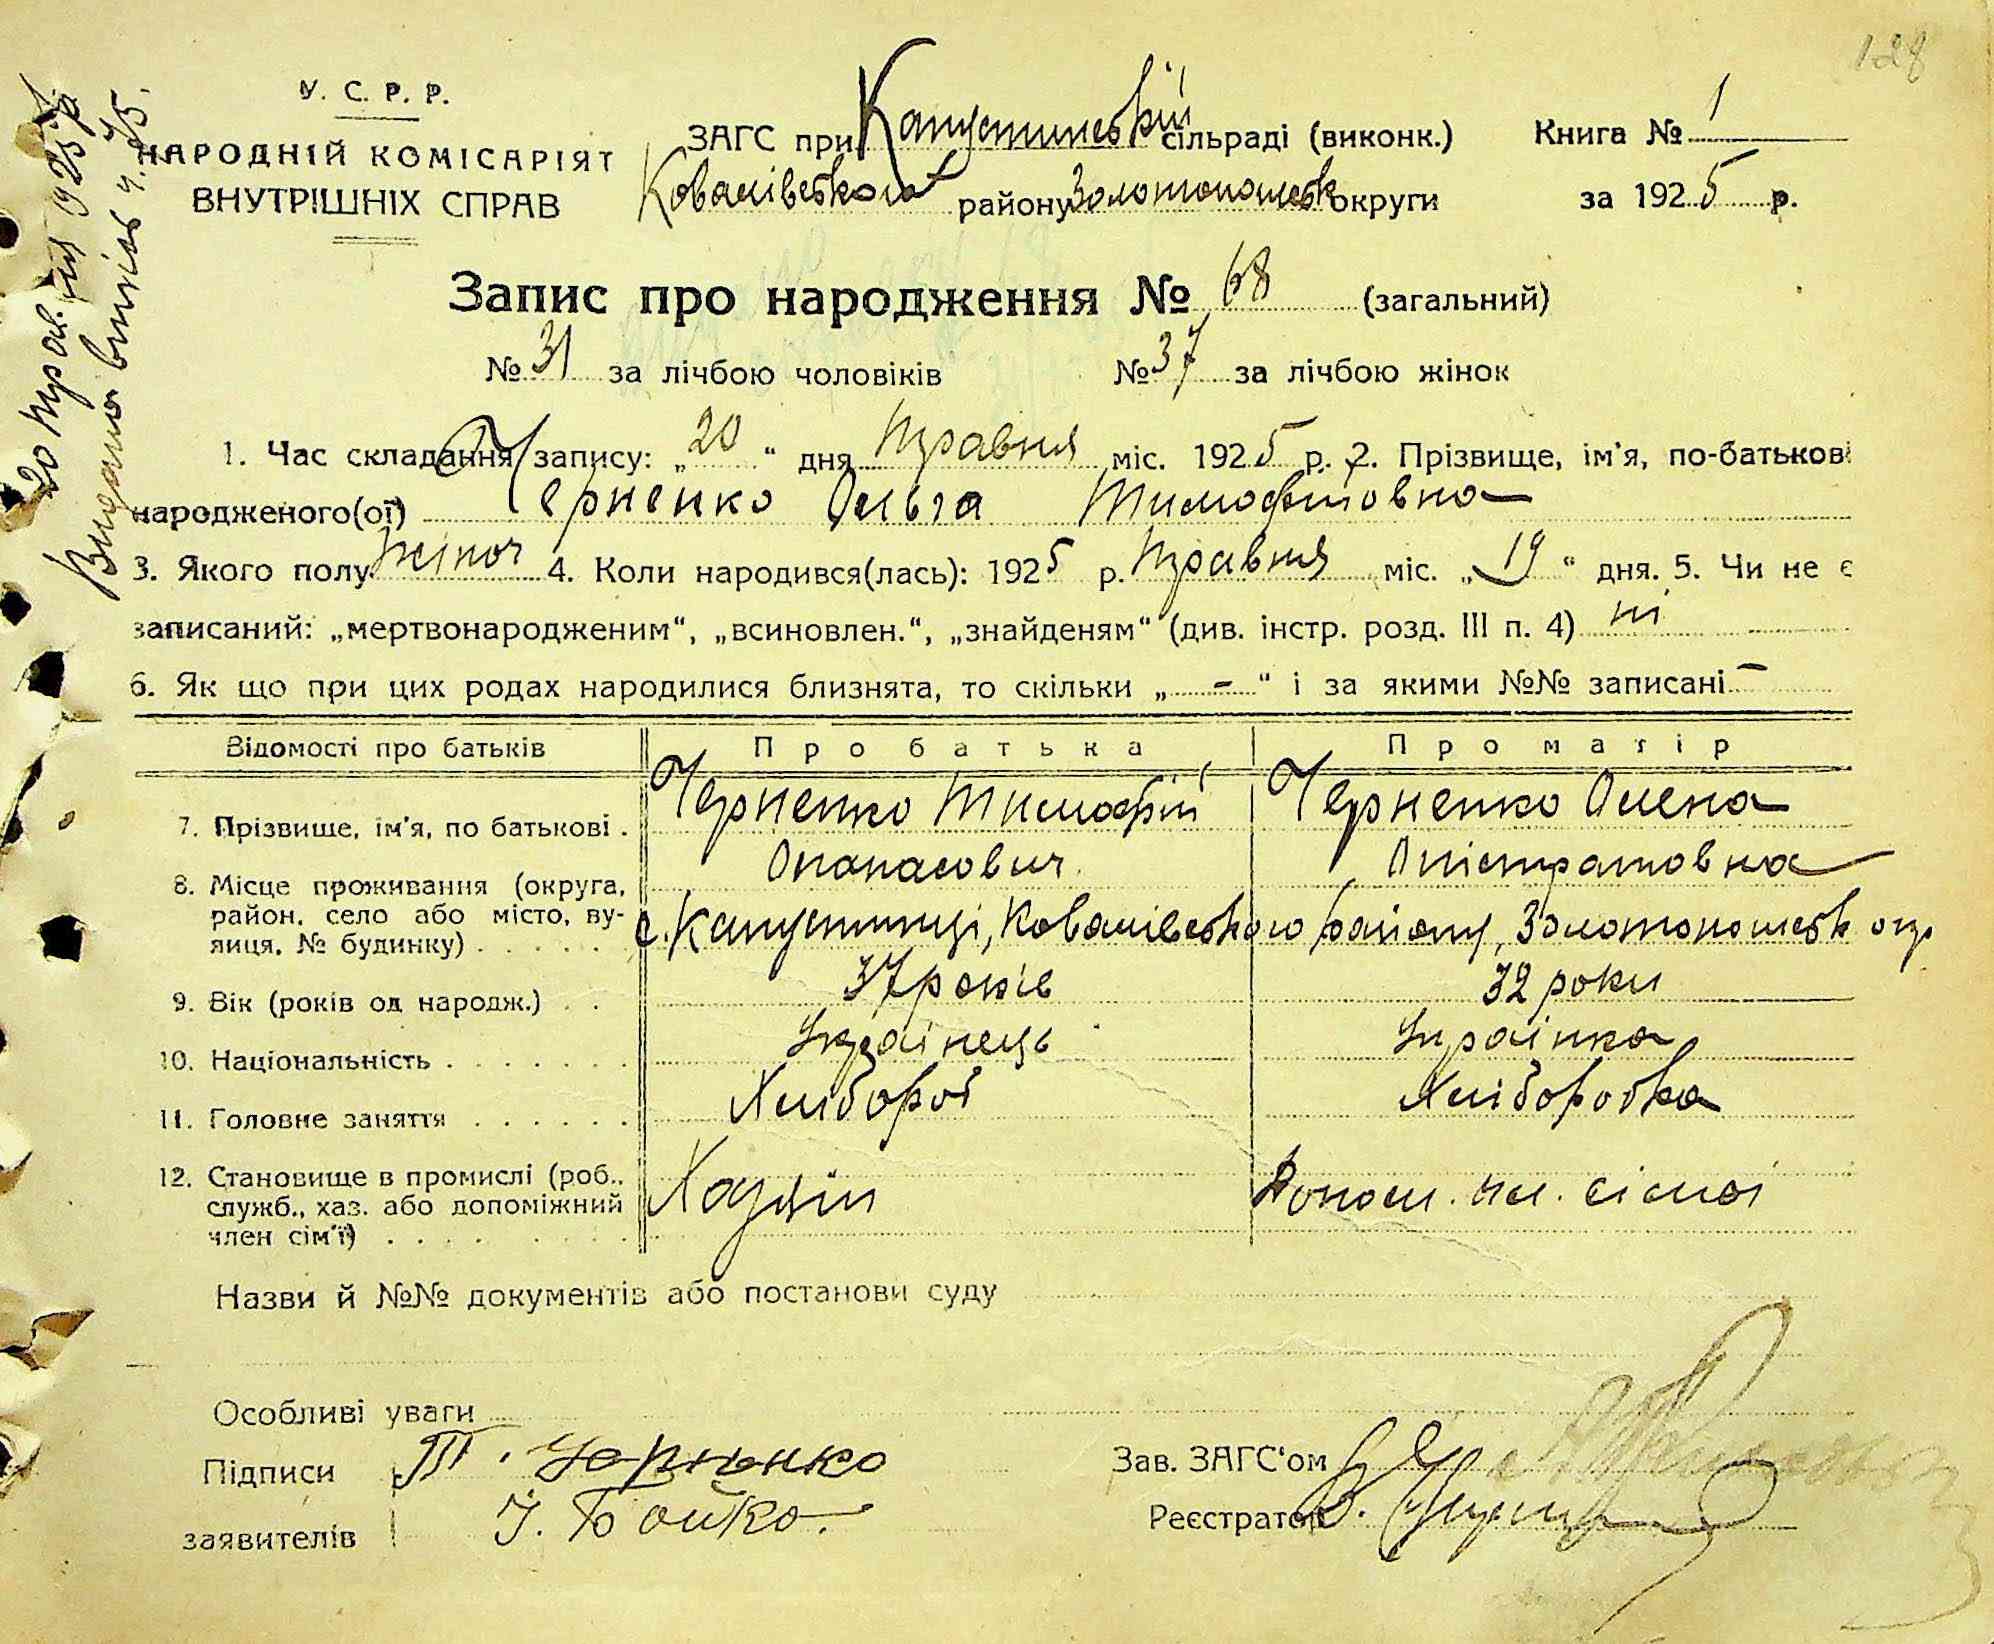 128
У. С. Р. Р.
НАРОДНІЙ КОМІСАРІЯТ
ВНУТРІШНІХ СПРАВ
ЗАГС при Капустинській сільраді (виконк.)
Ковалівського району Золотоношськ округи
Книга № 1
за 1925 р.
20 Травня 1925 р.
Видано випись ч. 75.
Запис про народження № 68 (загальний)
№ 31 за лічбою чоловіків № 37 за лічбою жінок
1. Час складання запису: „20“ дня Травня міс. 1925 р. 2. Прізвище, ім'я, по-батькові
народженого(ої) Черненко Ольга Тимофіївна
3. Якого полу жіноч 4. Коли народився(лась): 1925 р. Травня міс. „19“ дня. 5. Чи не є
записаний: „мертвонародженим“, „всиновлен.“, „знайденям“ (див. інстр. розд. III п. 4) ні
6. Як що при цих родах народилися близнята, то скільки „ - “ і за якими №№ записані -
Відомості про батьків Про батька Про матір
7. Прізвише, ім'я, по батькові . Черненко Тимофій Черненко Олена
Опанасович Опістратовна
8. Місце проживання (округа,
район, село або місто, ву-
лиця, № будинку) . . . . . с. Капустинці, Ковалівського району, Золотоношськ окр
9. Вік (років од народж.) . . 37 років 32 роки
10. Національність . . . . . . . Українець Українка
11. Головне заняття . . . . . . Хлібороб Хліборобка
12. Становище в промислі (роб..
служб., хаз. або допоміжний
член сім'ї) . . . . Хазяїн Допом. чл. сімої
Назви й №№ документів або постанови суду
Особливі уваги
Підписи Т. Чорненко
заявителів І. Бойко.
Зав. ЗАГС'ом
Реєстратор